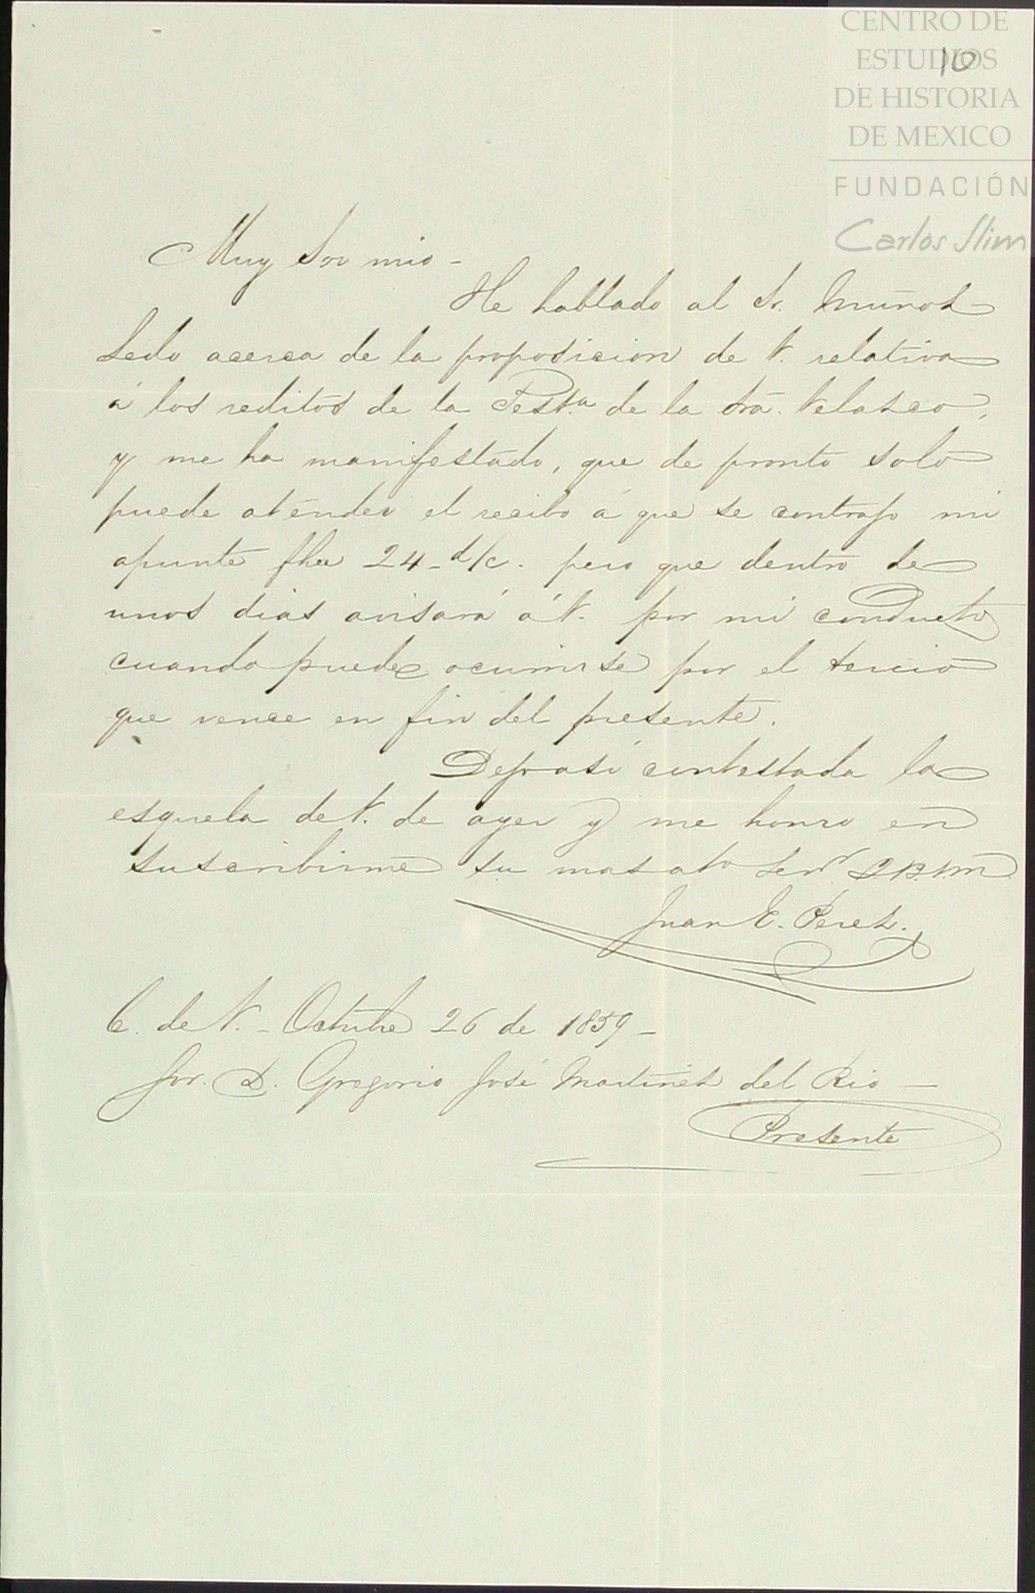 CENTRO DE
ESTUDIOS
DE HISTORIA
DE MEXICO
FUNDACIÓN
Carlos Slim
10
Muy Sor mio -
He hablado al Sr. Muñoz
Ledo acerca de la proposicion de V. relativa
á los reditos de la Test.a de la Sra. Velasco,
y me ha manifestado, que de pronto solo
puede atender el recibo á que se contrajo mi
apunte fha 24 - d/c. pero que dentro de
unos dias avisará á V. por mi conducto
cuando puede ocurrirse por el tercio
que vence en fin del presente.
Dejo asi contestada la
esquela de V. de ayer y me honro en
suscribirme su mas ato Serv.r Q.B.S.M.
Juan E. Perez.
C. de V. - Octubre 26 de 1859 -
Sor. D. Gregorio José Martinez del Rio -
Presente